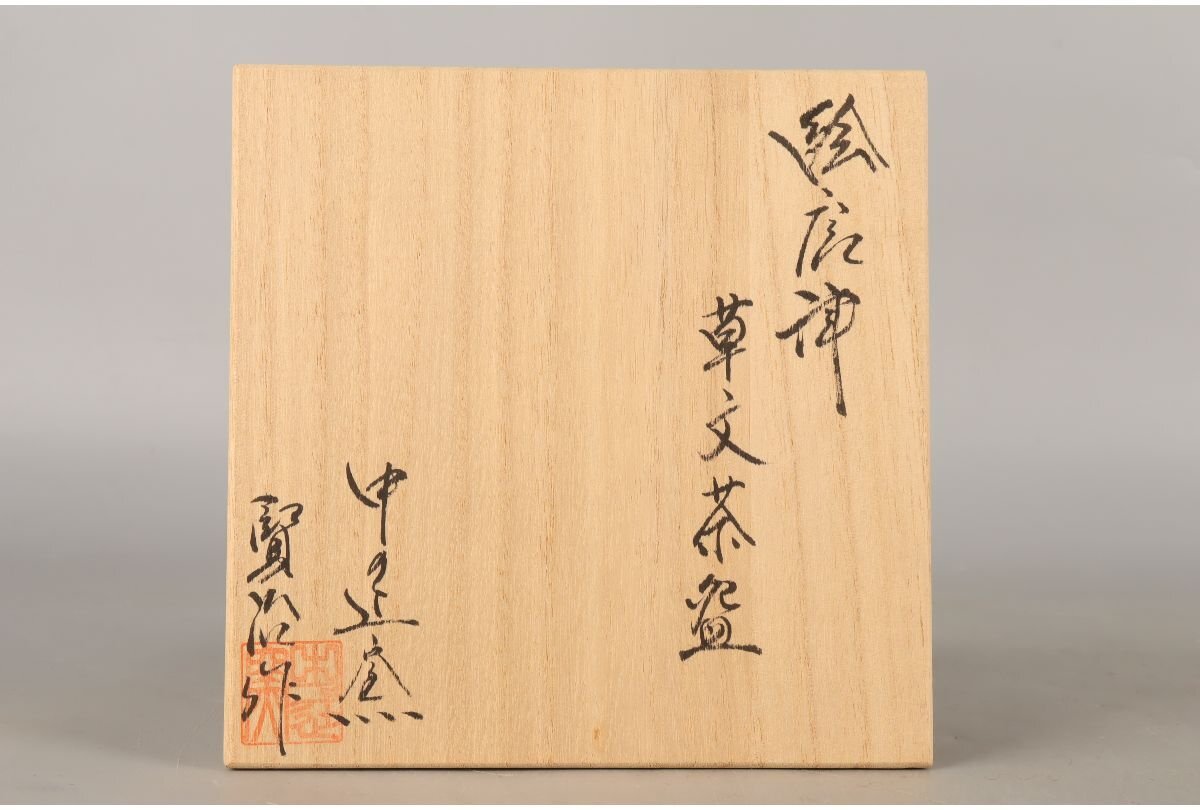 絵唐津
草文茶盌
中の辻窯
賢治作